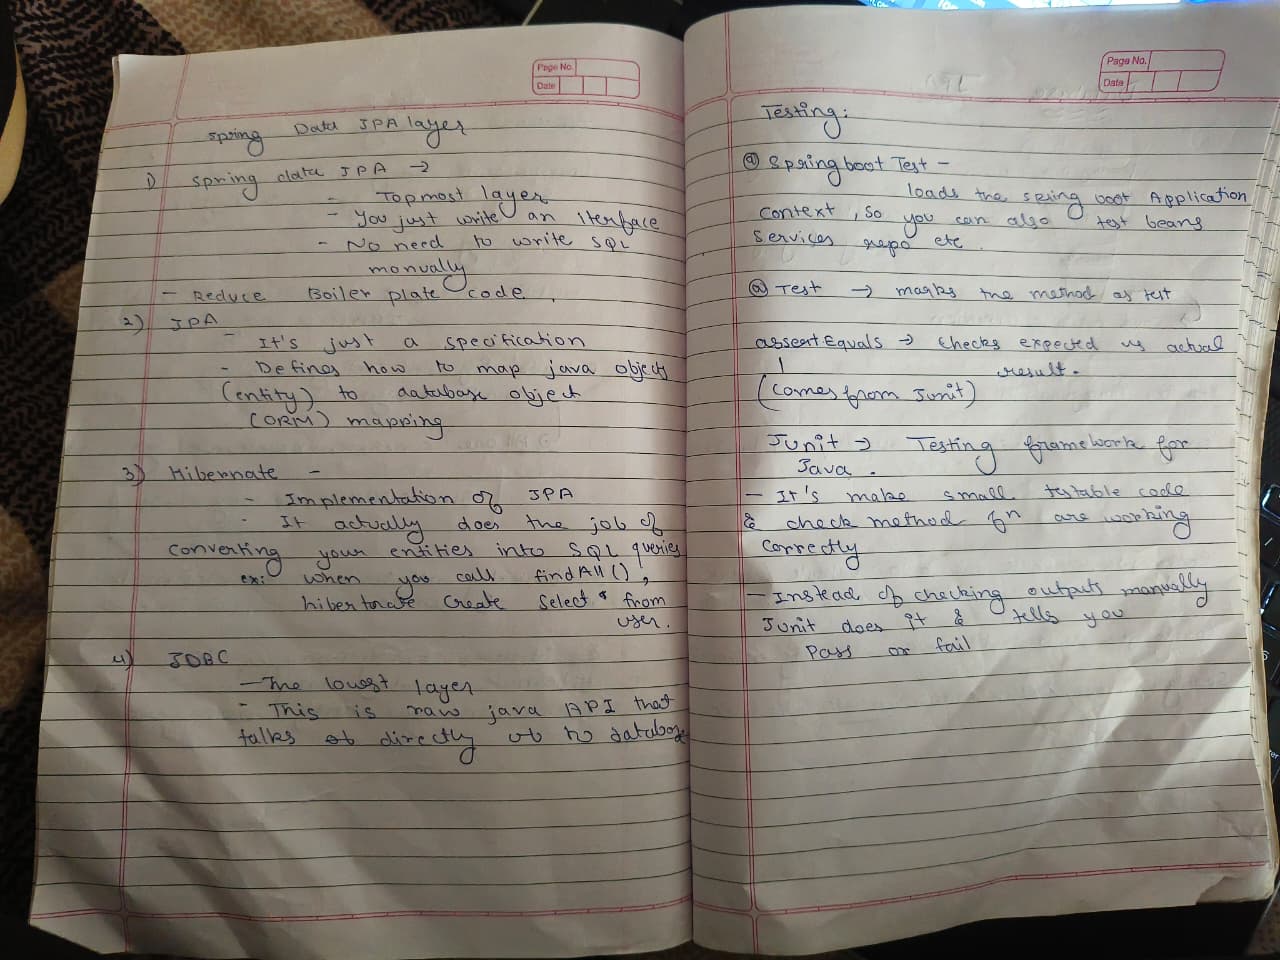 Page No.
Date
Spring Data JPA layer
1) Spring data JPA →
- Topmost layer
- You just write an iterface
- No need to write SQL
manually
- Reduce Boiler plate code.
2) JPA
- It's just a specification
- Defines how to map java object
(entity) to database object
(ORM) mapping
3) Hibernate -
- Implementation of JPA
- It actually does the job of
converting your entities into SQL queries
ex: when you call findAll(),
hibernate create Select * from
user.
4) JDBC
- The lowest layer
- This is raw java API that
talks directly to database
Page No.
Date
Testing:
@ Spring boot Test -
loads the spring boot Application
Context, so you can also test beans
services repo etc.
@ Test → marks the method as test
assertEquals → checks expected vs actual
result.
(Comes from Junit)
Junit → Testing framework for
Java.
- It's make small testable code
& check method fn are working
correctly
- Instead of checking outputs manually
Junit does it & tells you
Pass or fail